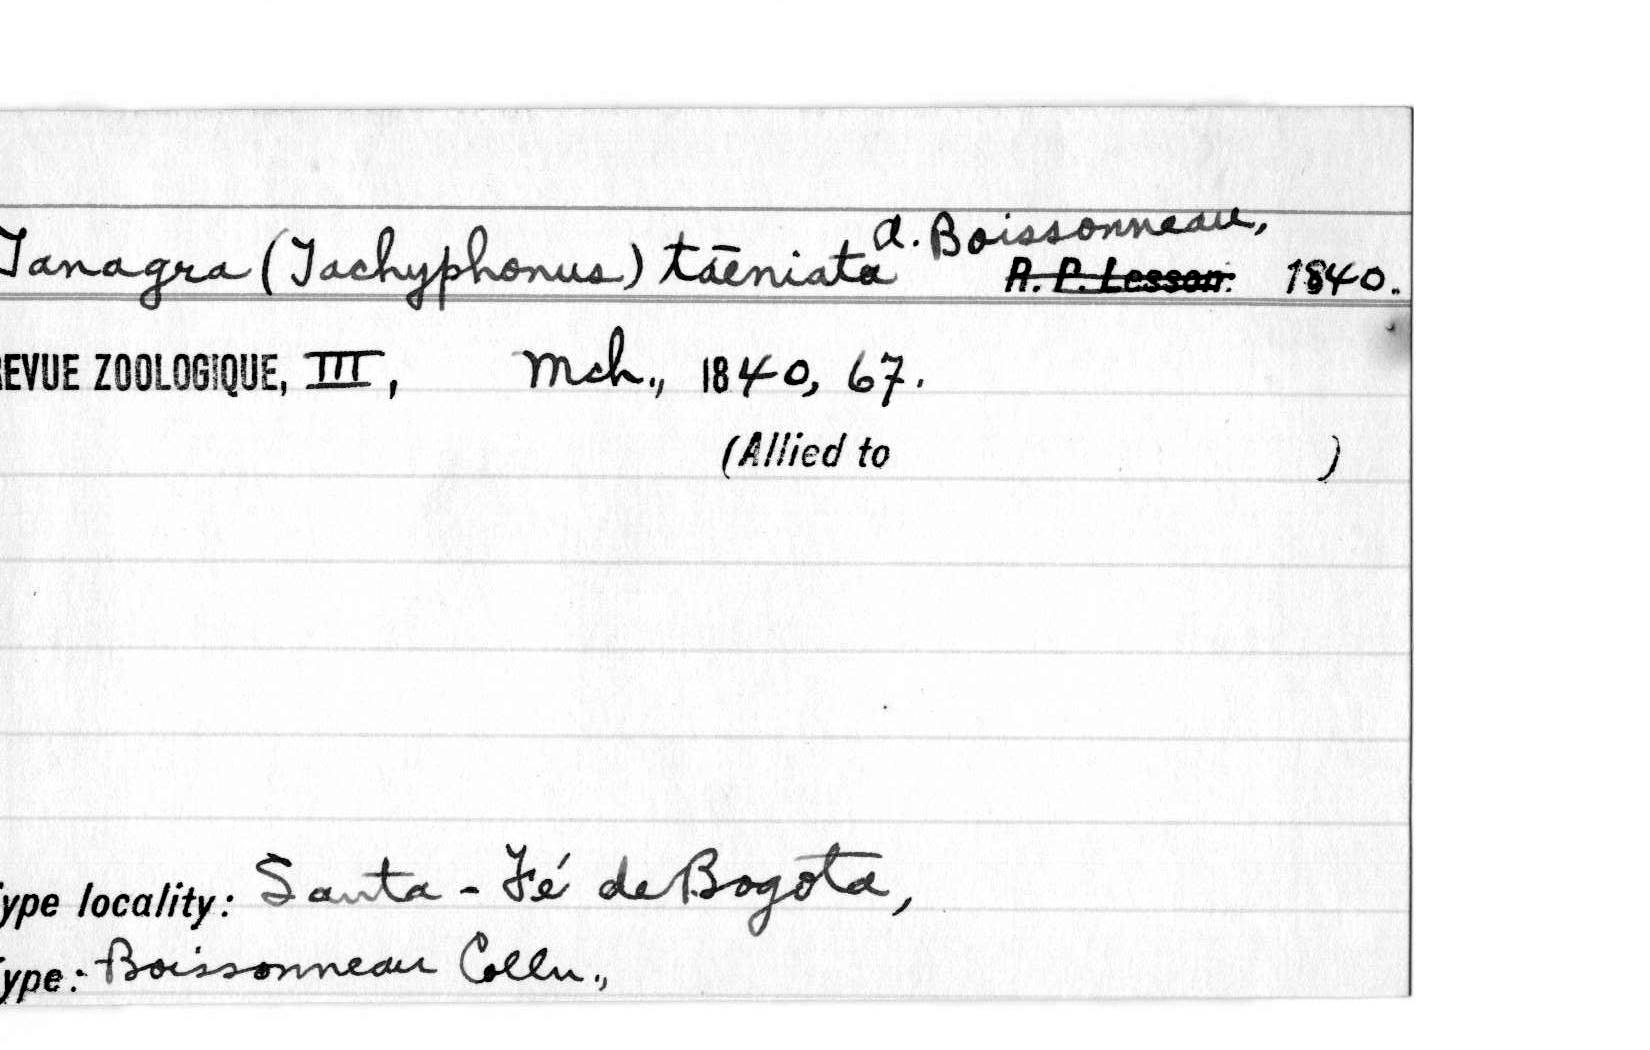 Tanagra (Tachyphonus) tāeniata A. Boissonneau, A. P. Lesson. 1840.
REVUE ZOOLOGIQUE, III, Mch., 1840, 67.
(Allied to )
ype locality: Santa-Fé de Bogota,
ype: Boissonneau Colln.,